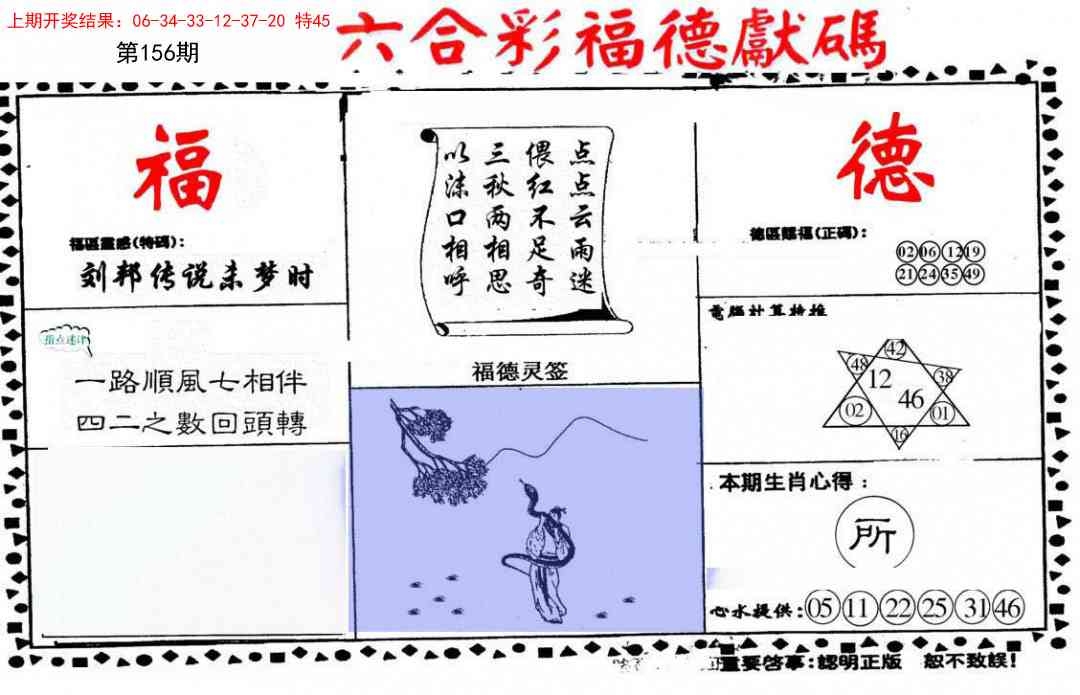 上期开奖结果：06-34-33-12-37-20 特45
第156期
六合彩福德獻碼
福
福區靈感(特碼)：
刘邦传说未梦时
指点迷津
一路順風七相伴
四二之數回頭轉
点点云雨迷
偎红不足奇
三秋两相思
以沫口相呼
福德灵签
德
德區賜福(正碼)：
02 06 12 19
21 24 35 49
42
48
38
12
46
02
01
16
本期生肖心得：
所
心水提供：05 11 22 25 31 46
重要啓事：認明正版 恕不致誤！